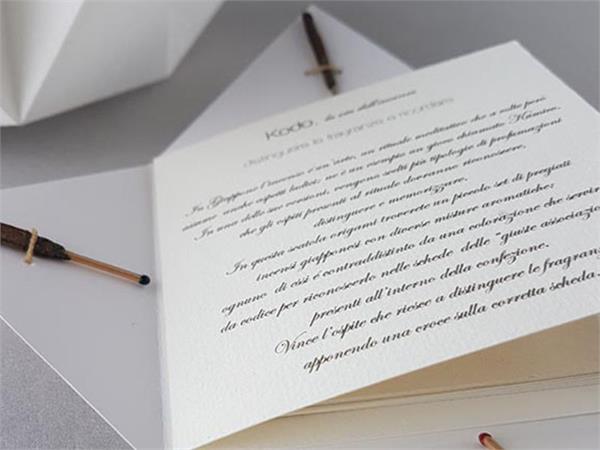 Kodo, la via dell'incenso
distinguere la fragranza e ricordare
In Giappone l'incenso è un'arte, un rituale meditativo che a volte però
assume anche aspetti ludici; ne è un esempio un gioco chiamato
In una delle sue versioni, vengono scelti più tipologie di profumazioni
che gli ospiti presenti al rituale dovranno riconoscere,
distinguere e memorizzare.
In questa scatola origami troverete un piccolo set di pregiati
incensi giapponesi con diverse misture aromatiche;
ognuno di essi é contraddistinto da una colorazione che
da codice per riconoscerlo nelle schede delle "giuste
presenti all'interno della confezione.
Vince l'ospite che riesce a distinguere le
apponendo una croce sulla corretta scheda.